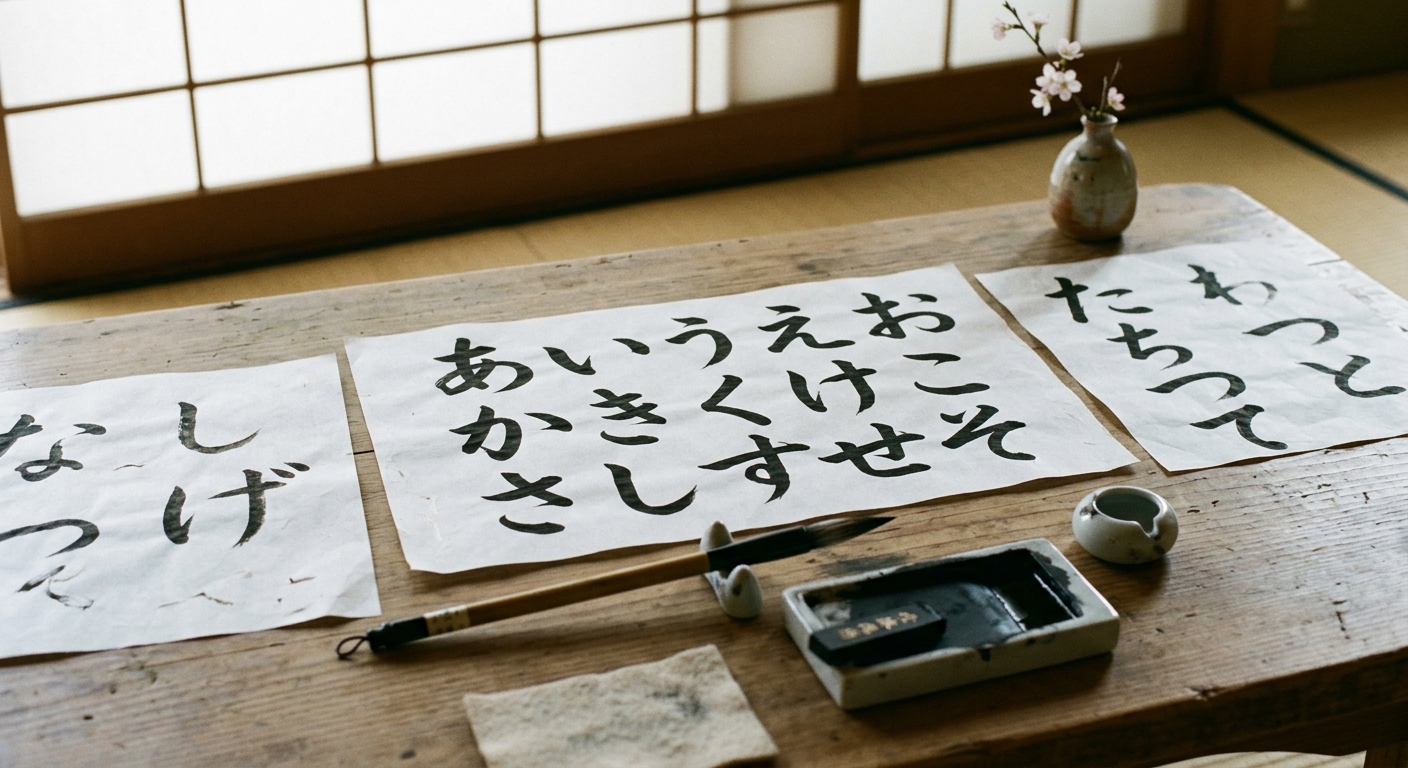 しげ
な
あいうえお
かきくけこ
さしすせそ
たちつて
つと